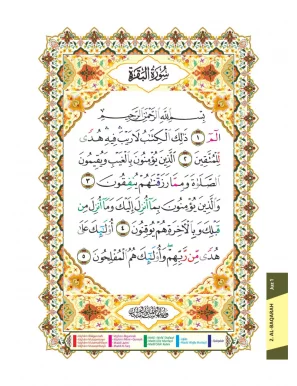 سُورَةُ الْبَقَرَةِ
بِسْمِ اللَّهِ الرَّحْمَٰنِ الرَّحِيمِ
الٓمٓ ١ ذَٰلِكَ الْكِتَٰبُ لَا رَيْبَ فِيهِ هُدًى
لِّلْمُتَّقِينَ ٢ الَّذِينَ يُؤْمِنُونَ بِالْغَيْبِ وَيُقِيمُونَ
الصَّلَوٰةَ وَمِمَّا رَزَقْنَٰهُمْ يُنفِقُونَ ٣
وَالَّذِينَ يُؤْمِنُونَ بِمَا أُنزِلَ إِلَيْكَ وَمَا أُنزِلَ مِن
قَبْلِكَ وَبِالْآخِرَةِ هُمْ يُوقِنُونَ ٤ أُولَٰئِكَ عَلَىٰ
هُدًى مِّن رَّبِّهِمْ وَأُولَٰئِكَ هُمُ الْمُفْلِحُونَ ٥
Juz 1
2. AL-BAQARAH